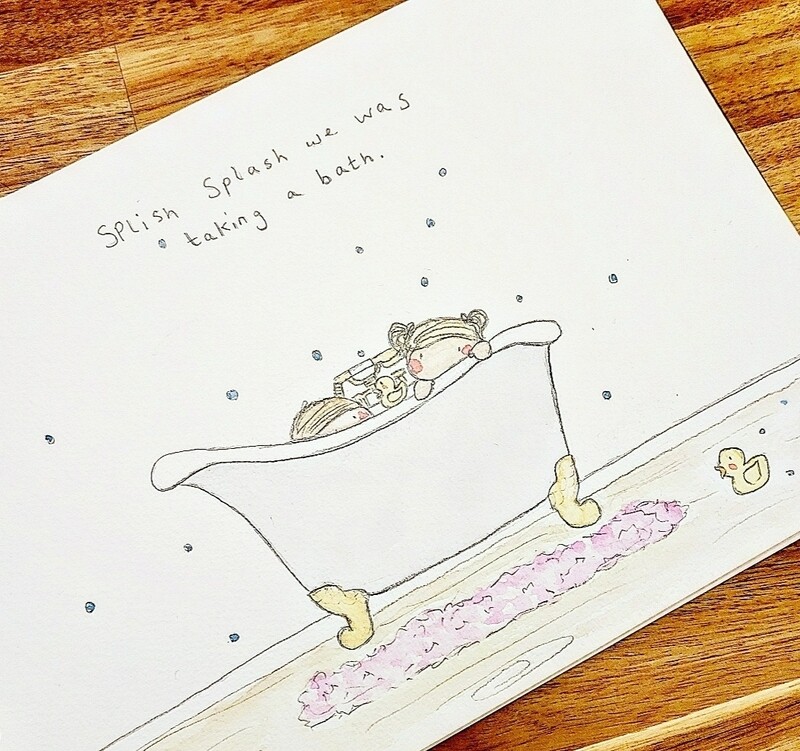 SPLish Splash we was
taking a bath.